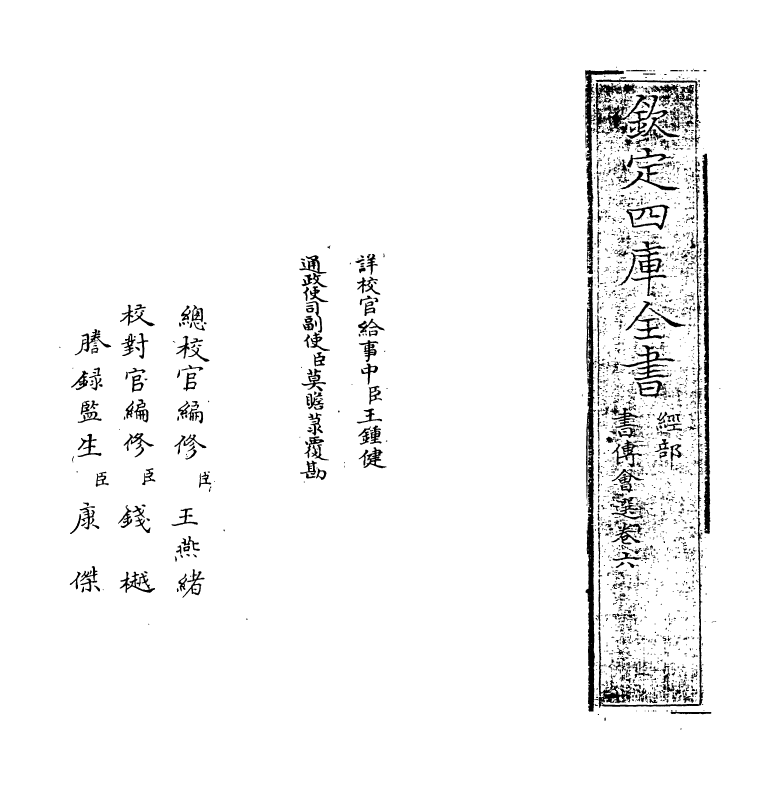 欽定四庫全書
經部
書傳會選卷六
詳校官給事中臣王鍾健
通政使司副使臣莫瞻菉覆勘
總校官編修臣王燕緒
校對官編修臣錢樾
謄錄監生臣康傑